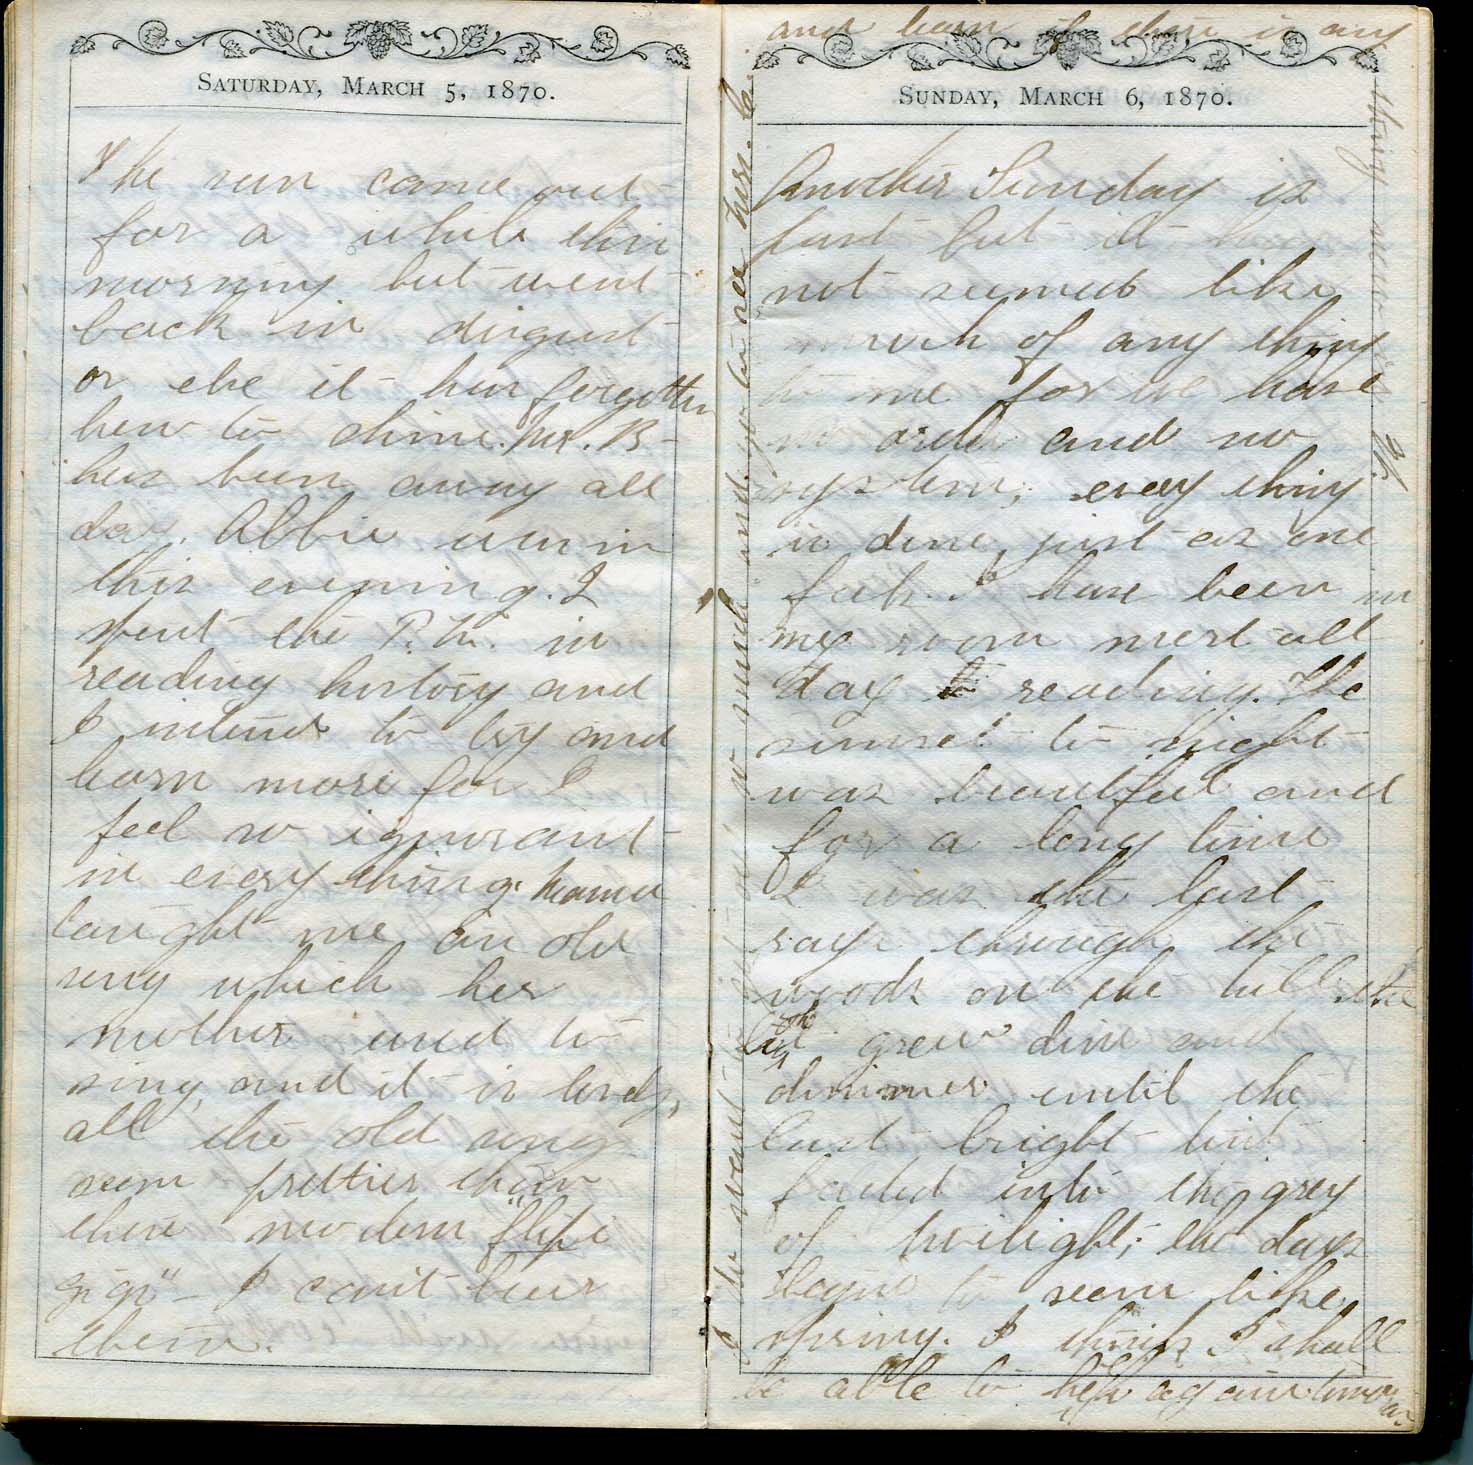 SATURDAY, MARCH 5, 1870.
The sun came out
for a while this
morning but went
back in disgust
or else it has forgotten
how to shine. Mr. B-
has been away all
day. Abbie was in
this evening. I
spent the P.M. in
reading history and
I intend to try and
learn more for I
feel so ignorant
in every thing. Mama
taught me an old
song which her
mother used to
sing, and it is lovely,
all the old songs
seem prettier than
these modern "flipe
gigs" - I can't bear
them.
SUNDAY, MARCH 6, 1870.
Another Sunday is
past but it has
not seemed like
much of any thing
to me for we have
no order and no
system; every thing
is done just as one
feels. I have been in
my room most all
day reading. The
sunset to night
was beautiful and
for a long time
I saw the last
rays through the
woods on the hill. the
light grew dim and
dimmer until the
last bright tint
faded into the grey
of twilight; the days
begin to seem like
spring. I think I shall
be able to help again tomorrow
I do want to
so much and go to see
and learn if there is any
thing new